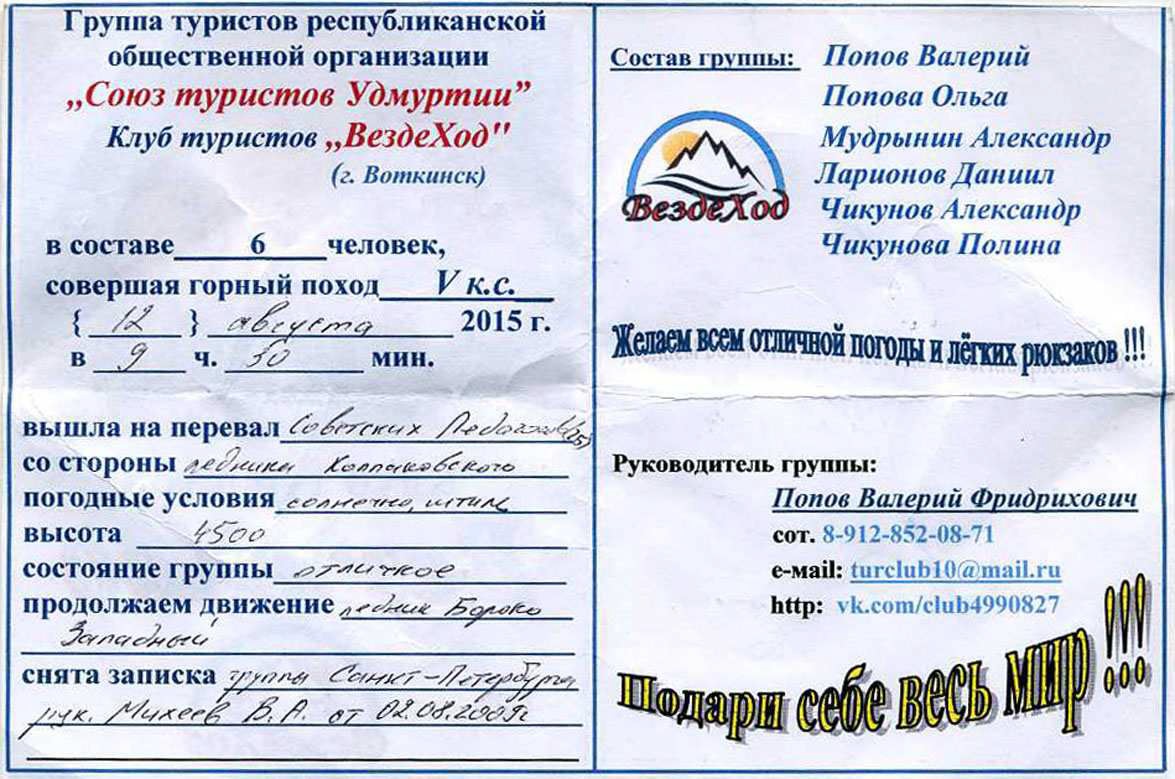 Группа туристов республиканской
общественной организации
„Союз туристов Удмуртии”
Клуб туристов „ВездеХод"
(г. Воткинск)
в составе 6 человек,
совершая горный поход V к.с.
{ 12 } августа 2015 г.
в 9 ч. 30 мин.
вышла на перевал Советских
со стороны ледника Колпаковского
погодные условия солнечно, штиль
высота 4500
состояние группы отличное
продолжаем движение ледник Бороко
Западный
снята записка группы Санкт-Петербурга
рук. Михеев В.А. от 02.08.2009г
Состав группы: Попов Валерий
Попова Ольга
Мудрынин Александр
Ларионов Даниил
Чикунов Александр
Чикунова Полина
ВездеХод
Желаем всем отличной погоды и лёгких рюкзаков !!!
Руководитель группы:
Попов Валерий Фридрихович
сот. 8-912-852-08-71
е-маil: turclub10@mail.ru
http: vk.com/club4990827
Подари себе весь мир !!!